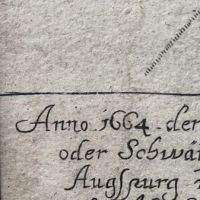 Anno 1664 der
oder Schwä
Augspurg